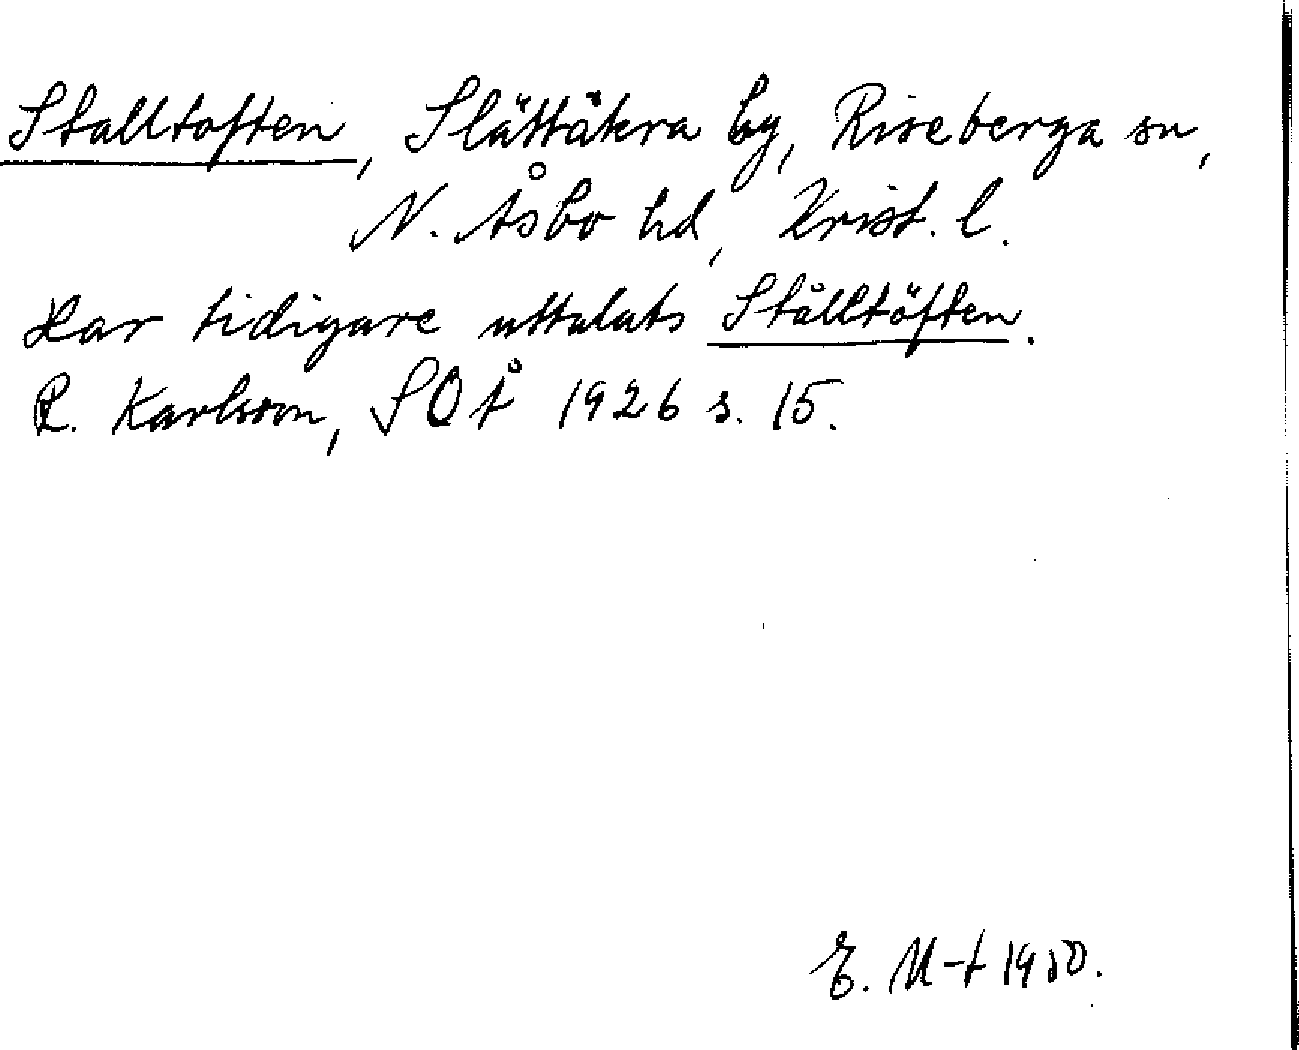 Stalltoften, Slättåkra by, Riseberga sn,
N. Åsbo hd, Krist. l.
Har tidigare uttalats Stålltöften.
R. Karlsson, SOÅ 1926 s. 15.
E. M-t 1950.